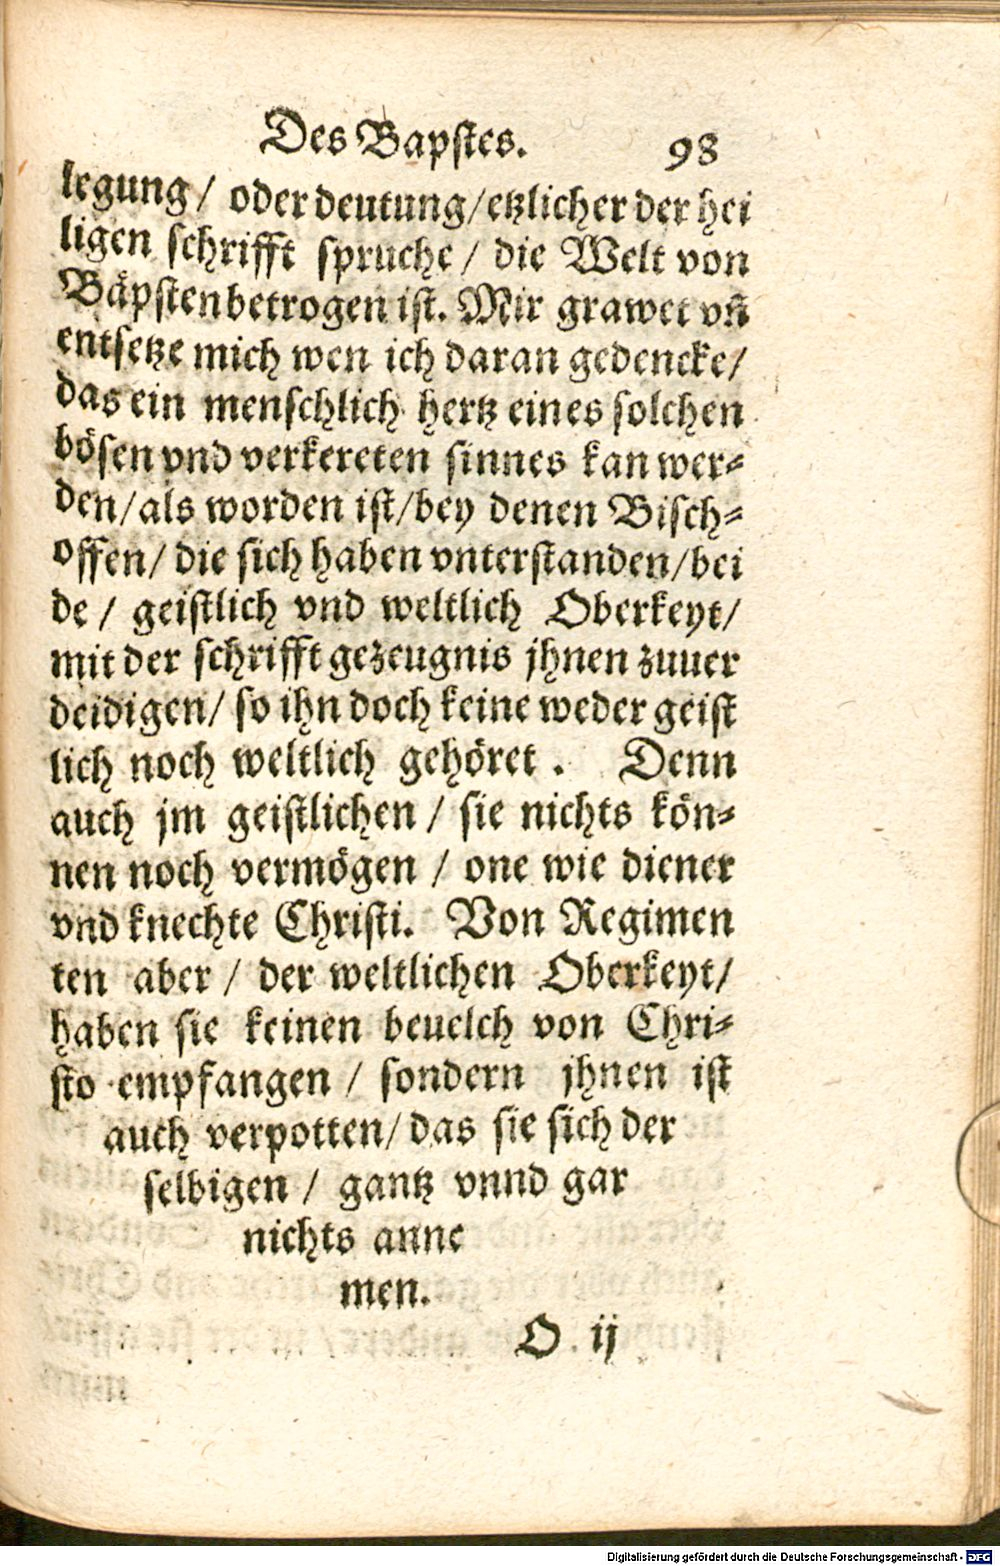 Des Bapstes. 98
legung / oder deutung/etzlicher der hei
ligen schrifft spruche / die Welt von
Bäpsten betrogen ist. Mir grawet vñ
entsetze mich wen ich daran gedencke/
das ein menschlich hertz eines solchen
bösen vnd verkereten sinnes kan wer⸗
den/als worden ist/bey denen Bisch⸗
offen/ die sich haben vnterstanden/bei
de / geistlich vnd weltlich Oberkeyt/
mit der schrifft gezeugnis jhnen zuuer
deidigen/ so ihn doch keine weder geist
lich noch weltlich gehöret . Denn
auch jm geistlichen / sie nichts kön⸗
nen noch vermögen / one wie diener
vnd knechte Christi. Von Regimen
ten aber / der weltlichen Oberkeyt/
haben sie keinen beuelch von Chri⸗
sto empfangen / sondern jhnen ist
auch verpotten/ das sie sich der
selbigen / gantz vnnd gar
nichts anne
men.
O ij
Digitalisierung gefördert durch die Deutsche Forschungsgemeinschaft - DFG